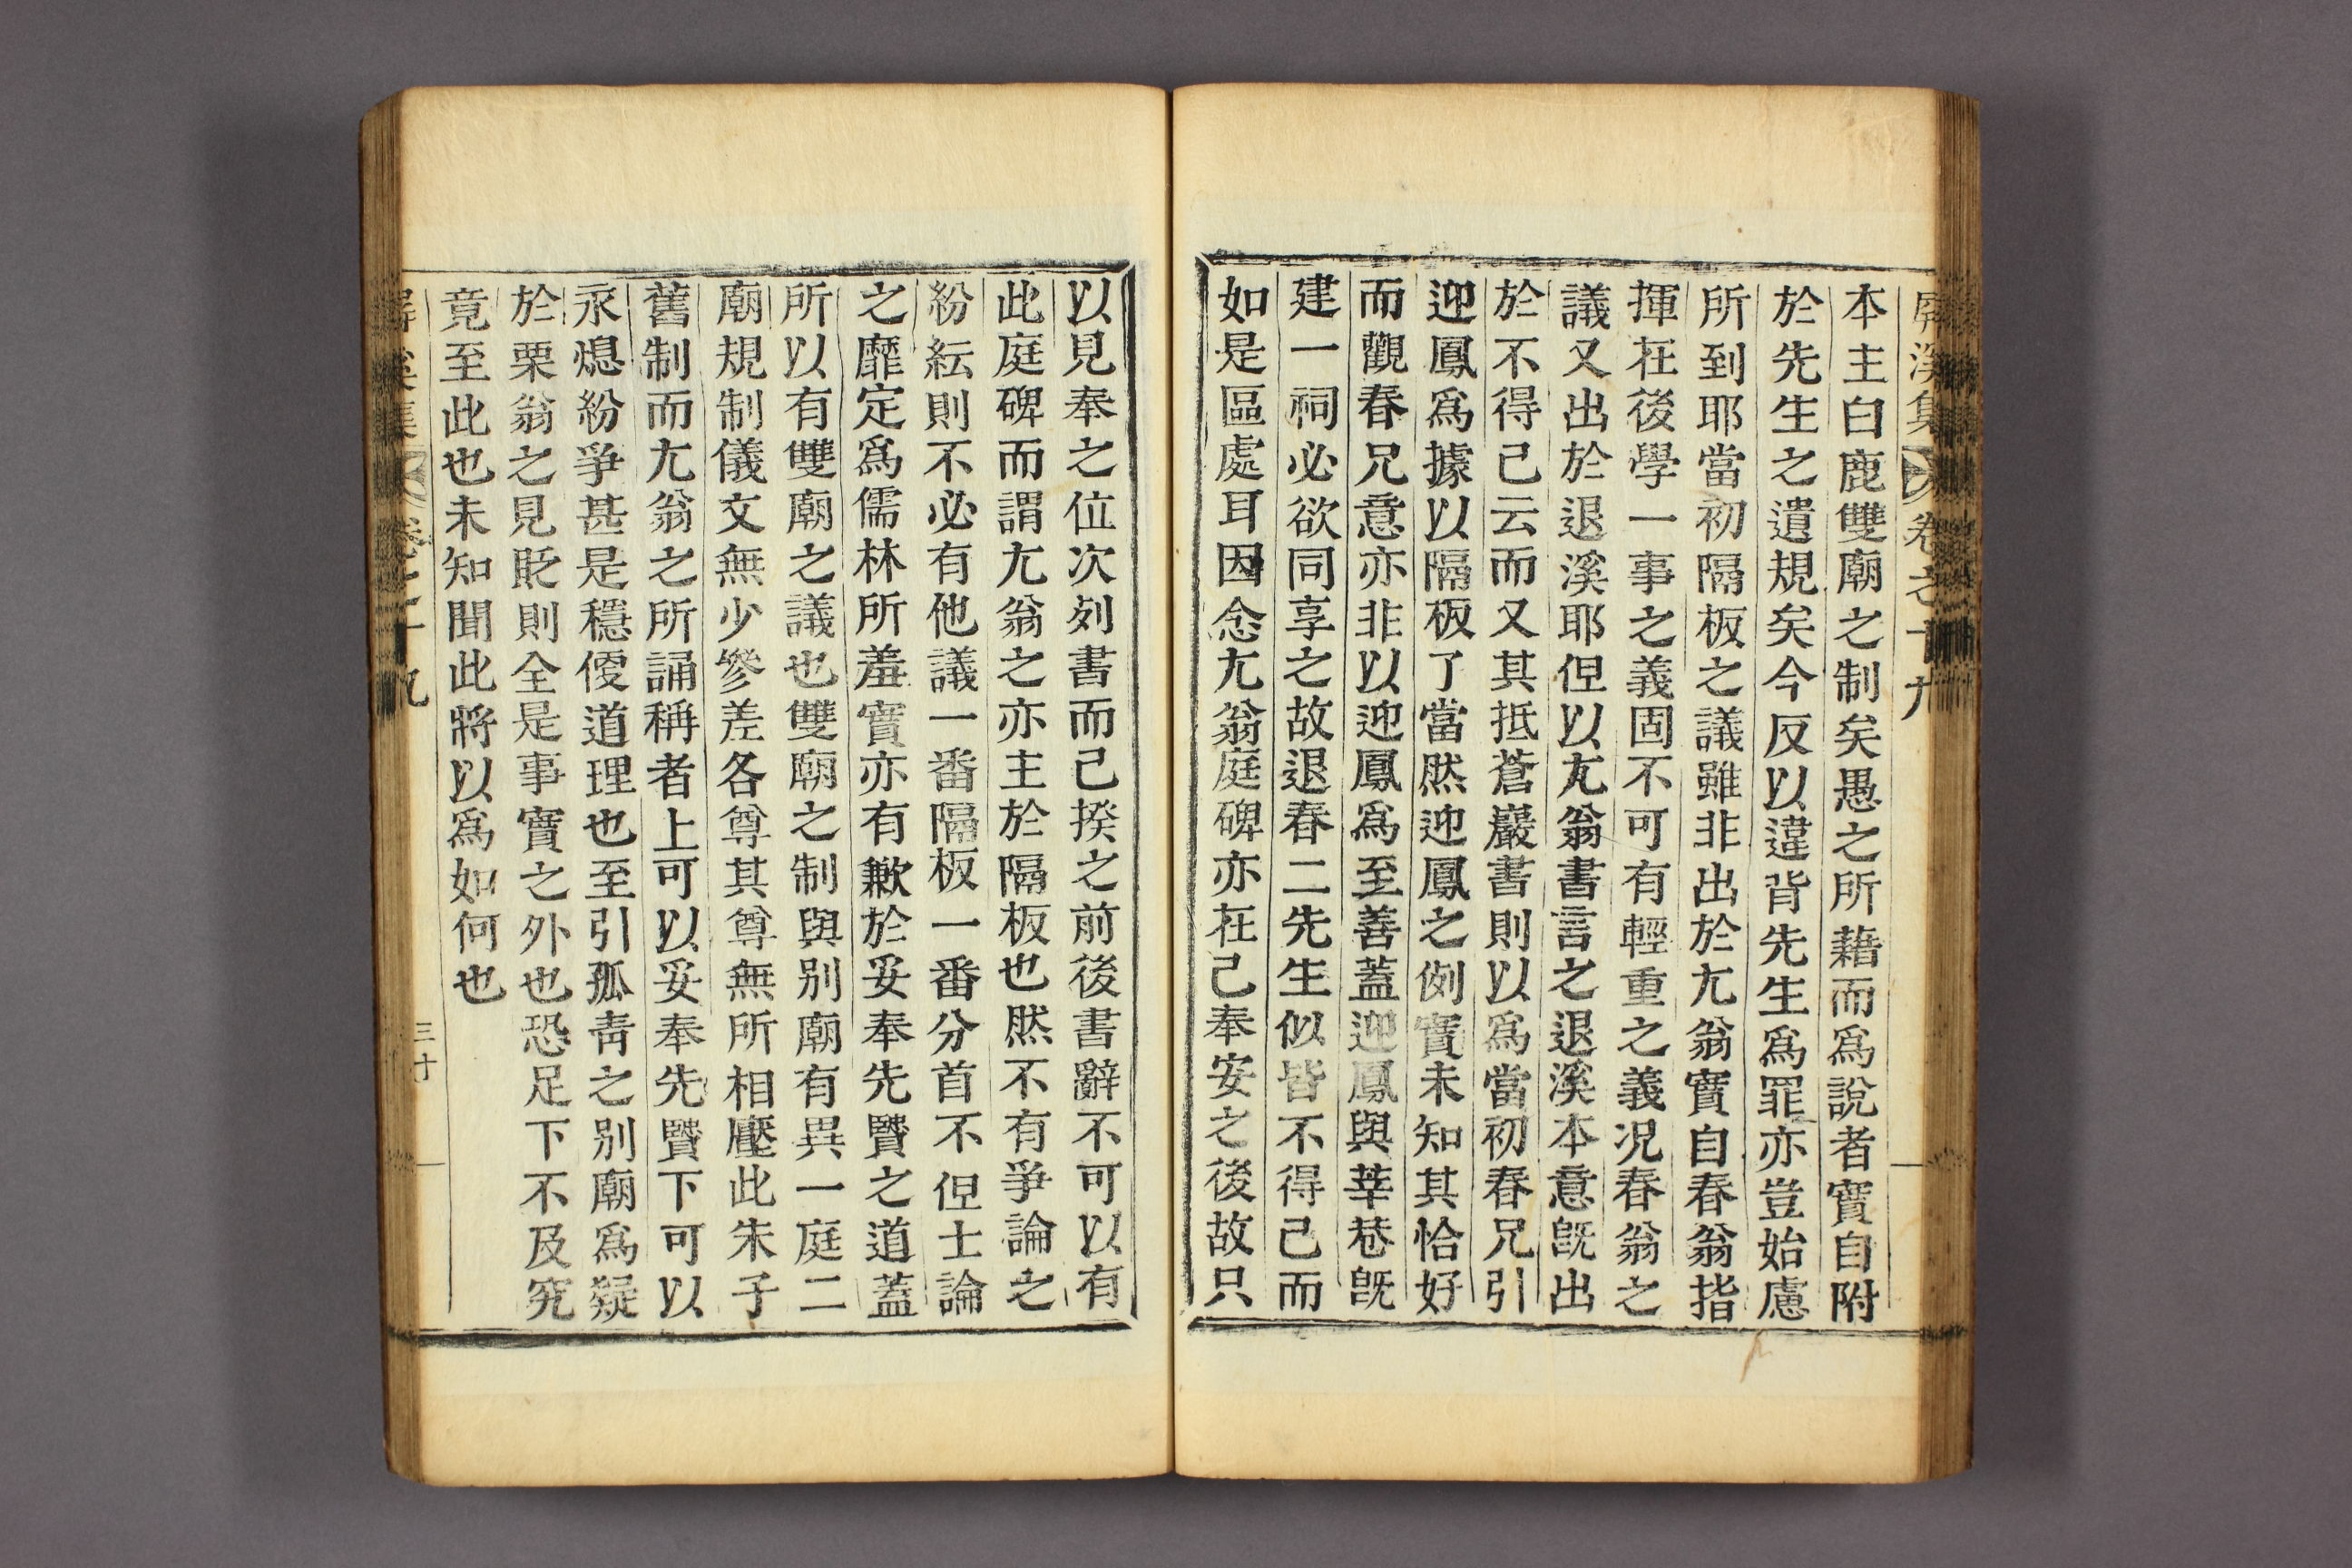 屛溪集 卷之十九
本主白鹿雙廟之制矣愚之所藉而爲說者實自附
於先生之遺規矣今反以違背先生爲罪亦豈始慮
所到耶當初隔板之議雖非出於尤翁實自春翁指
揮在後學一事之義固不可有輕重之義况春翁之
議又出於退溪耶但以尤翁書言之退溪本意旣出
於不得已云而又其抵蒼巖書則以爲當初春兄引
迎鳳爲據以隔板了當然迎鳳之例實未知其恰好
而觀春兄意亦非以迎鳳爲至善蓋迎鳳與莘巷旣
建一祠必欲同享之故退春二先生似皆不得已而
如是區處耳因念尤翁庭碑亦在已奉安之後故只
以見奉之位次列書而已揆之前後書辭不可以有
此庭碑而謂尤翁之亦主於隔板也然不有爭論之
紛紜則不必有他議一番隔板一番分首不但士論
之靡定爲儒林所羞實亦有歉於妥奉先賢之道蓋
所以有雙廟之議也雙廟之制與別廟有異一庭二
廟規制儀文無少參差各尊其尊無所相壓此朱子
舊制而尤翁之所誦稱者上可以妥奉先賢下可以
永熄紛爭甚是穩便道理也至引孤靑之別廟爲疑
於栗翁之見貶則全是事實之外也恐足下不及究
竟至此也未知聞此將以爲如何也
屛溪集 卷之十九 三十